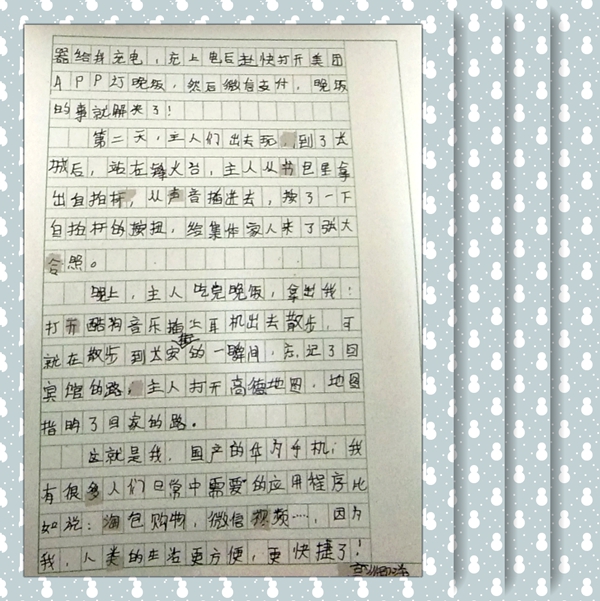 器给我充电，充上电后赶快打开美团
APP订晚饭，然后微信支付，晚饭
的事就解决了！
第二天，主人们出去玩，到了长
城后，站在锋火台，主人从书包里拿
出自拍杆，从声音插进去，按了一下
自拍杆的按扭，给集体家人来了张大
合照。
晚上，主人吃完晚饭，拿出我！
打开酷狗音乐插上耳机出去散步，可
就在散步到大街的一瞬间，忘记了回
宾馆的路，主人打开高德地图，地图
指明了回家的路。
这就是我，国产的华为手机；我
有很多人们日常中需要的应用程序比
如说：淘包购物，微信视频……，因为
我，人类的生活更方便，更快捷了！